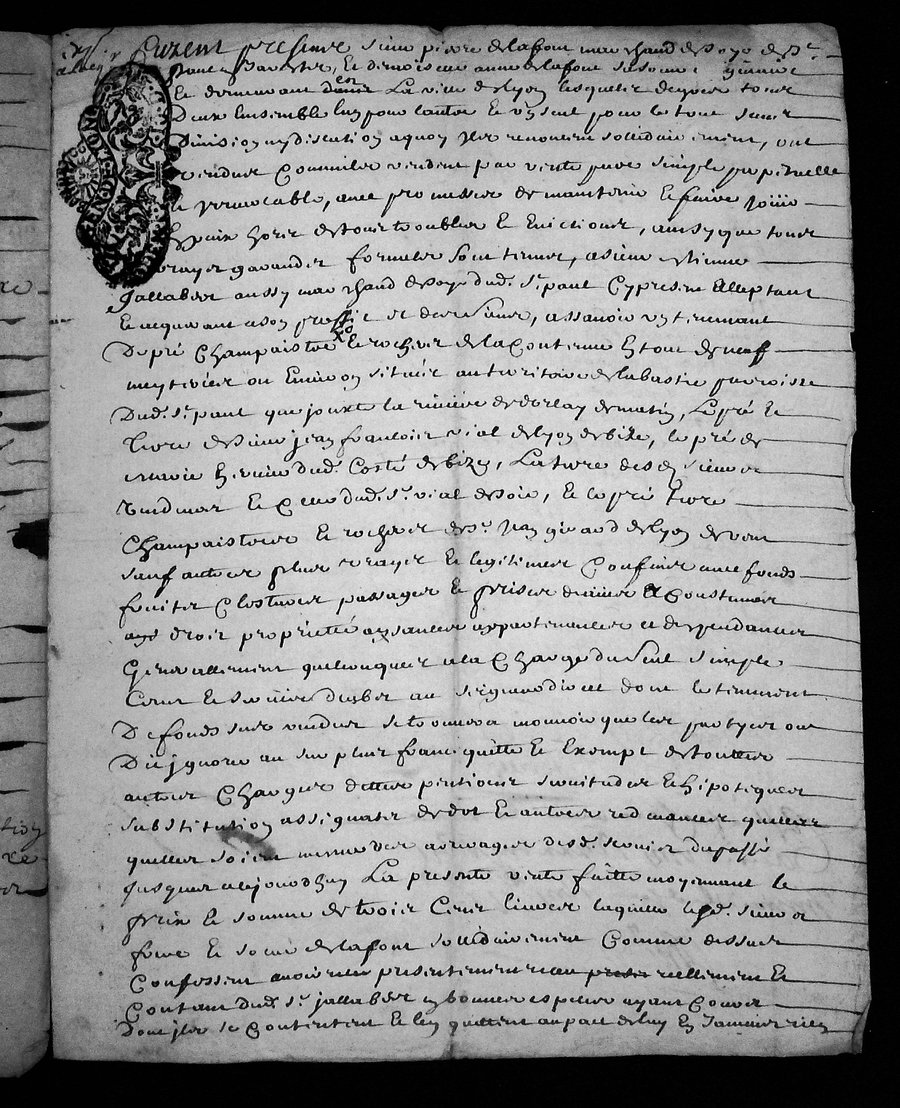 Furent presents sieur pierre delafont marchand de soye de St
paul en Jarestz, et demoiselle anne delafont sa soeur
et demeurant en la ville de lyon lesquels de gré tous
deux ensemble lun pour lautre et un seul pour le tout sans
division ny discution a quoy ils renoncent sollidairement, ont
vendu et vendent par vente pure simple perpetuelle
et yrrevocable, avec promesse de maintenir et faire jouir
en paix hors de tous troubles et evictions, ainsy que tous
vrays garands formels sont tenus, a sieur estienne
Jallabert aussy marchand de soye dud. St. paul Cy present acceptant
et acquerant a son proffit et des siens, assavoir un tenement
De pré Champaistre et rochers de la Contenue en tout de neuf
meyterées ou Environ situé au territoire de labastie parroisse
Dud. St. paul que jouxte la riviere de dorlay de matin, le pré et
terre de sieur jean francois vial de lyon de bize, le pré de
dud. Costé de bize, La terre desd. sieurs
vendeurs et Celle dud. Sr. vial de soir, et le pré terre
Champaistre et rochers de Sr. Jean giraud de lyon de vent
sauf autres plus vrays et legitimes Confins avec fonds
fruits Clostures passages et prises d'eaux et Coustumes
droit proprietté aysances appartenances et dependances
Generallement quelconques a la Charge du seul simple
Cens et servis deubs au seigneur direct dont le tenement
De fonds sus vendus se trouvera mouvoir que les partyes ont
Dit ignorer au surplus franc quitte et Exempt de touttes
autres Charges dettes pentions servitudes et hipoteques
substitution assignats de dot et autres redevances quelles
quelles soient mesme des arrerages desd. servis du passé
Jusques a ce jourdhuy La presente vente faitte moyennant le
prix et somme de trois Cens livres laquelle lesd. sieurs
frere et soeur delafont sollidairement Comme dessus
Confessent avoir reçu presentement reellement et
Contant dud. Sr. jallabert en bonnes especes ayant Cours
Dont ils se Contentent et len quittent au pact de luy En Jamais rien